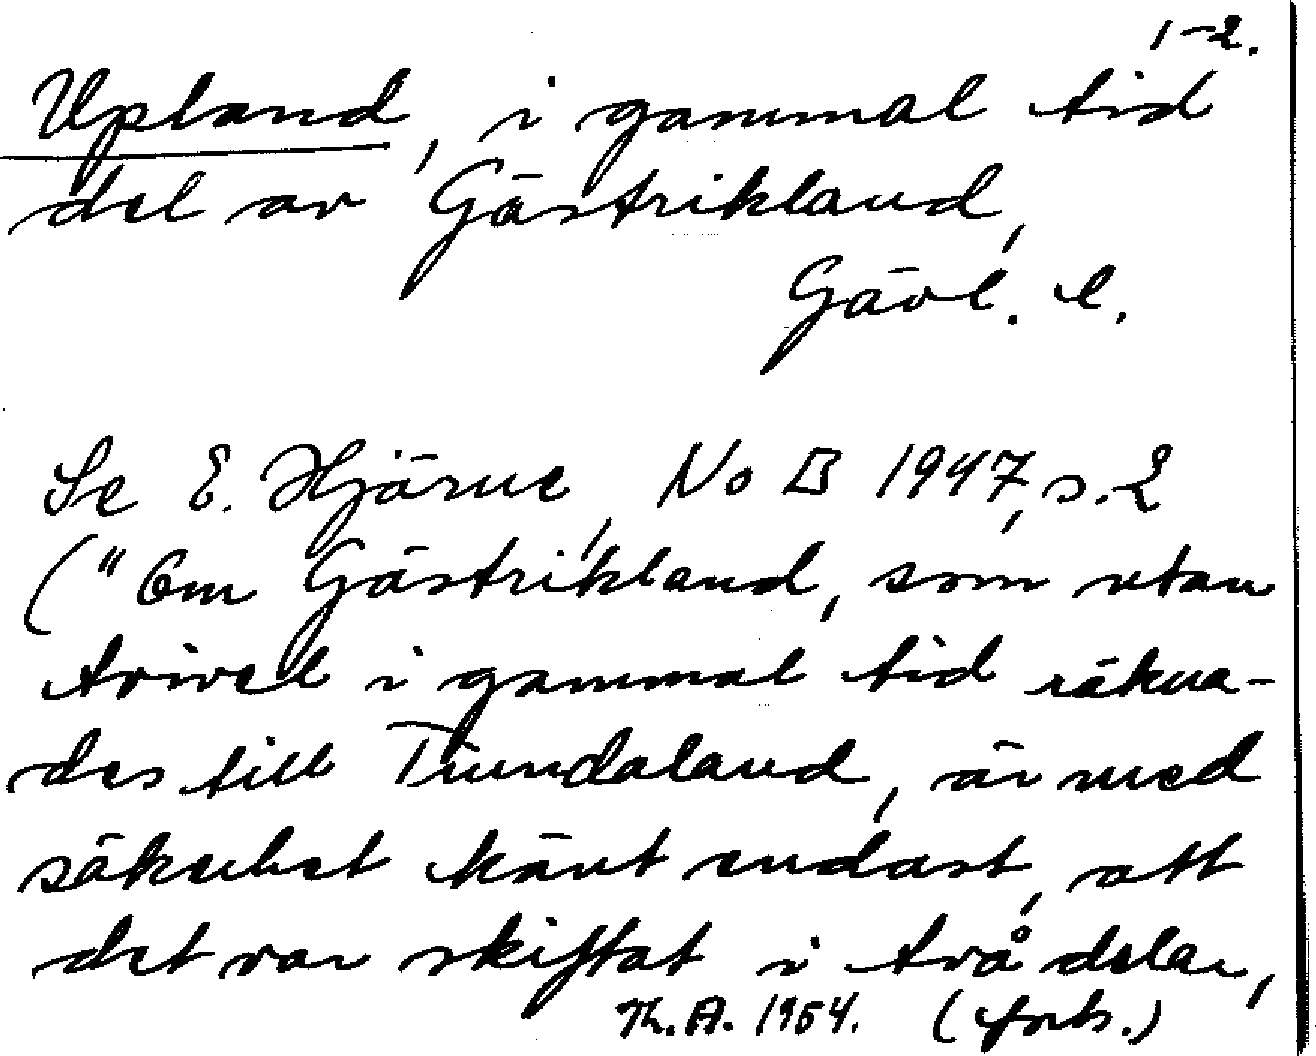 1-2.
Upland, i gammal tid
del av Gästrikland,
Gävl. l.
Se E. Hjärne, NoB 1947, s. 2
("Om Gästrikland, som utan
tvivel i gammal tid räkna-
des till Tiundaland, är med
säkerhet känt endast, att
det var skiftat i två delar,
Th. A. 1954. (forts.)